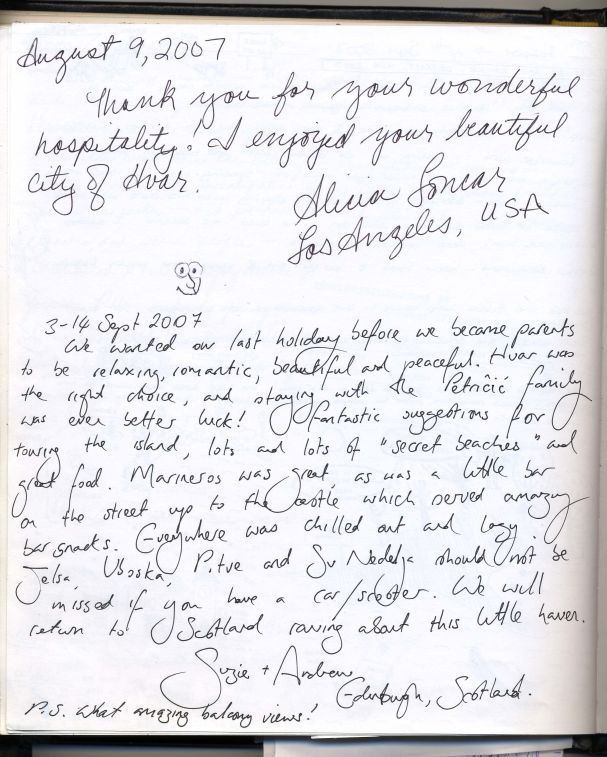 August 9, 2007
Thank you for your wonderful
hospitality! I enjoyed your beautiful
city of Hvar.
Alicia Loncar
Los Angeles, USA
3-14 Sept 2007
We wanted our last holiday before we became parents
to be relaxing, romantic, beautiful and peaceful. Hvar was
the right choice, and staying with the Petričić family
was even better luck! Fantastic suggestions for
touring the island, lots and lots of "secret beaches" and
great food. Marineros was great, as was a little bar
on the street up to the castle which served amazing
bar snacks. Everywhere was chilled out and lazy.
Jelsa, Pitve and Sv Nedelja should not be
missed if you have a car/scooter. We will
return to Scotland raving about this little haven.
Suzie + Andrew
Edinburgh, Scotland.
P.S. What amazing balcony views!